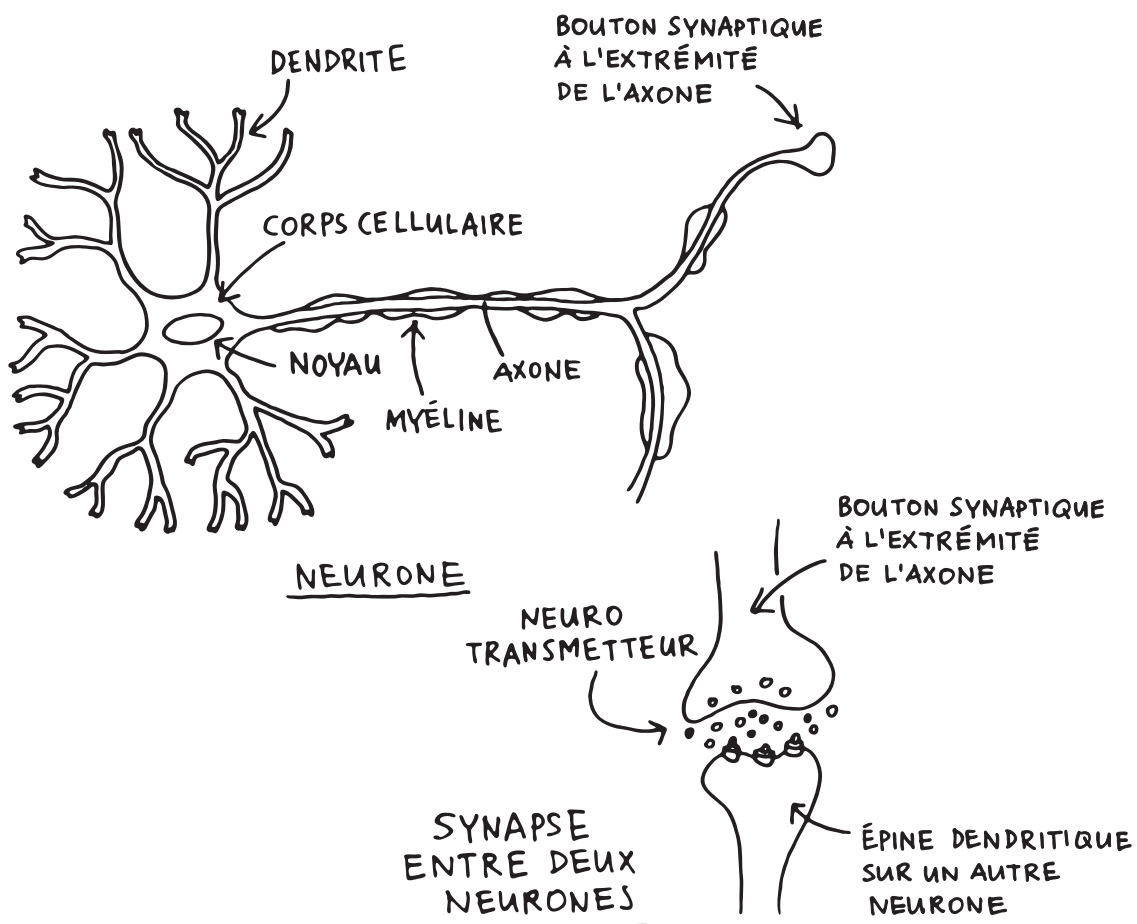 DENDRITE
BOUTON SYNAPTIQUE
À L'EXTRÉMITÉ
DE L'AXONE
CORPS CELLULAIRE
NOYAU
AXONE
MYÉLINE
NEURONE
BOUTON SYNAPTIQUE
À L'EXTRÉMITÉ
DE L'AXONE
NEURO
TRANSMETTEUR
SYNAPSE
ENTRE DEUX
NEURONES
ÉPINE DENDRITIQUE
SUR UN AUTRE
NEURONE